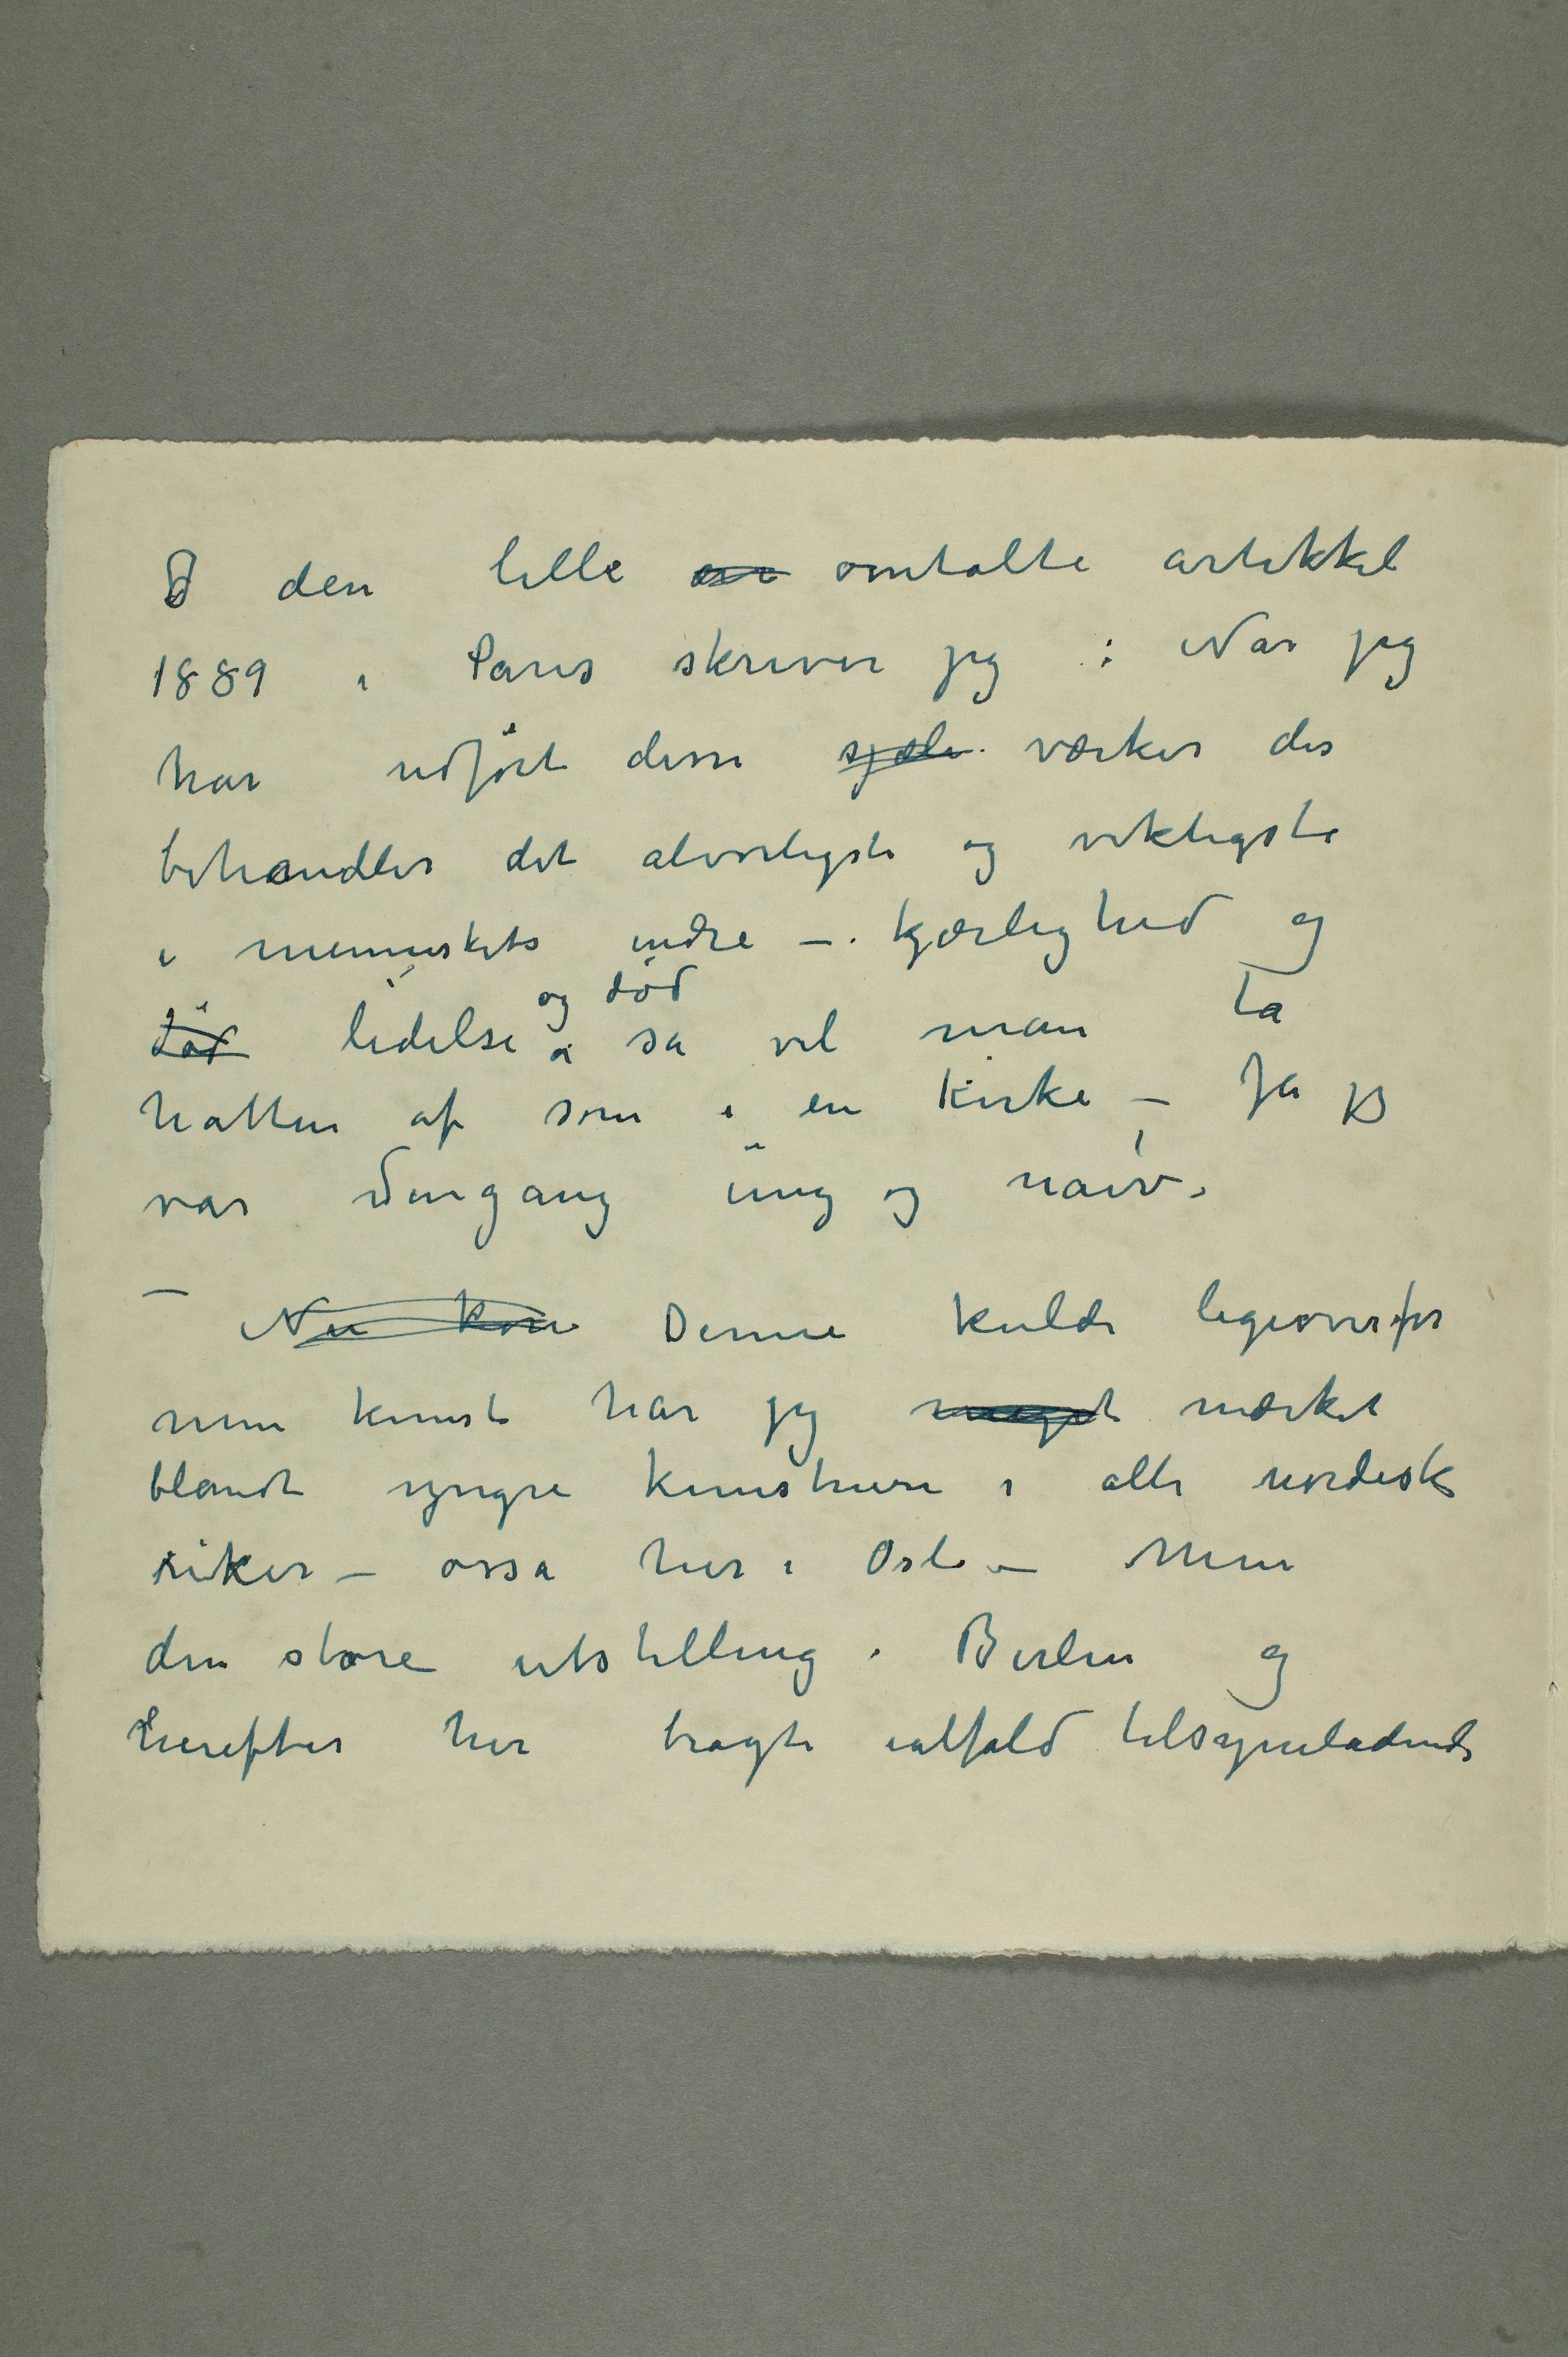 I den lille om omtalte artikkel
1889 i Paris skriver jeg : Når jeg
har udført disse sjæle værker der
behandler det alvorligste og viktigste
i menneskets indre – kjærlighed og
og død
død lidelse så vil man ta
hatten af som i en Kirke – Ja jeg
var dengang ung og naiv.
– Nu kom Denne kulde ligeoverfor
min kunst har jeg meget mærket
blandt yngre kunstnere i alle nordiske
riker – osså her i Oslo – Men
den store utstilling i Berlin og
herefter her bragte ialfald tilsyneladende